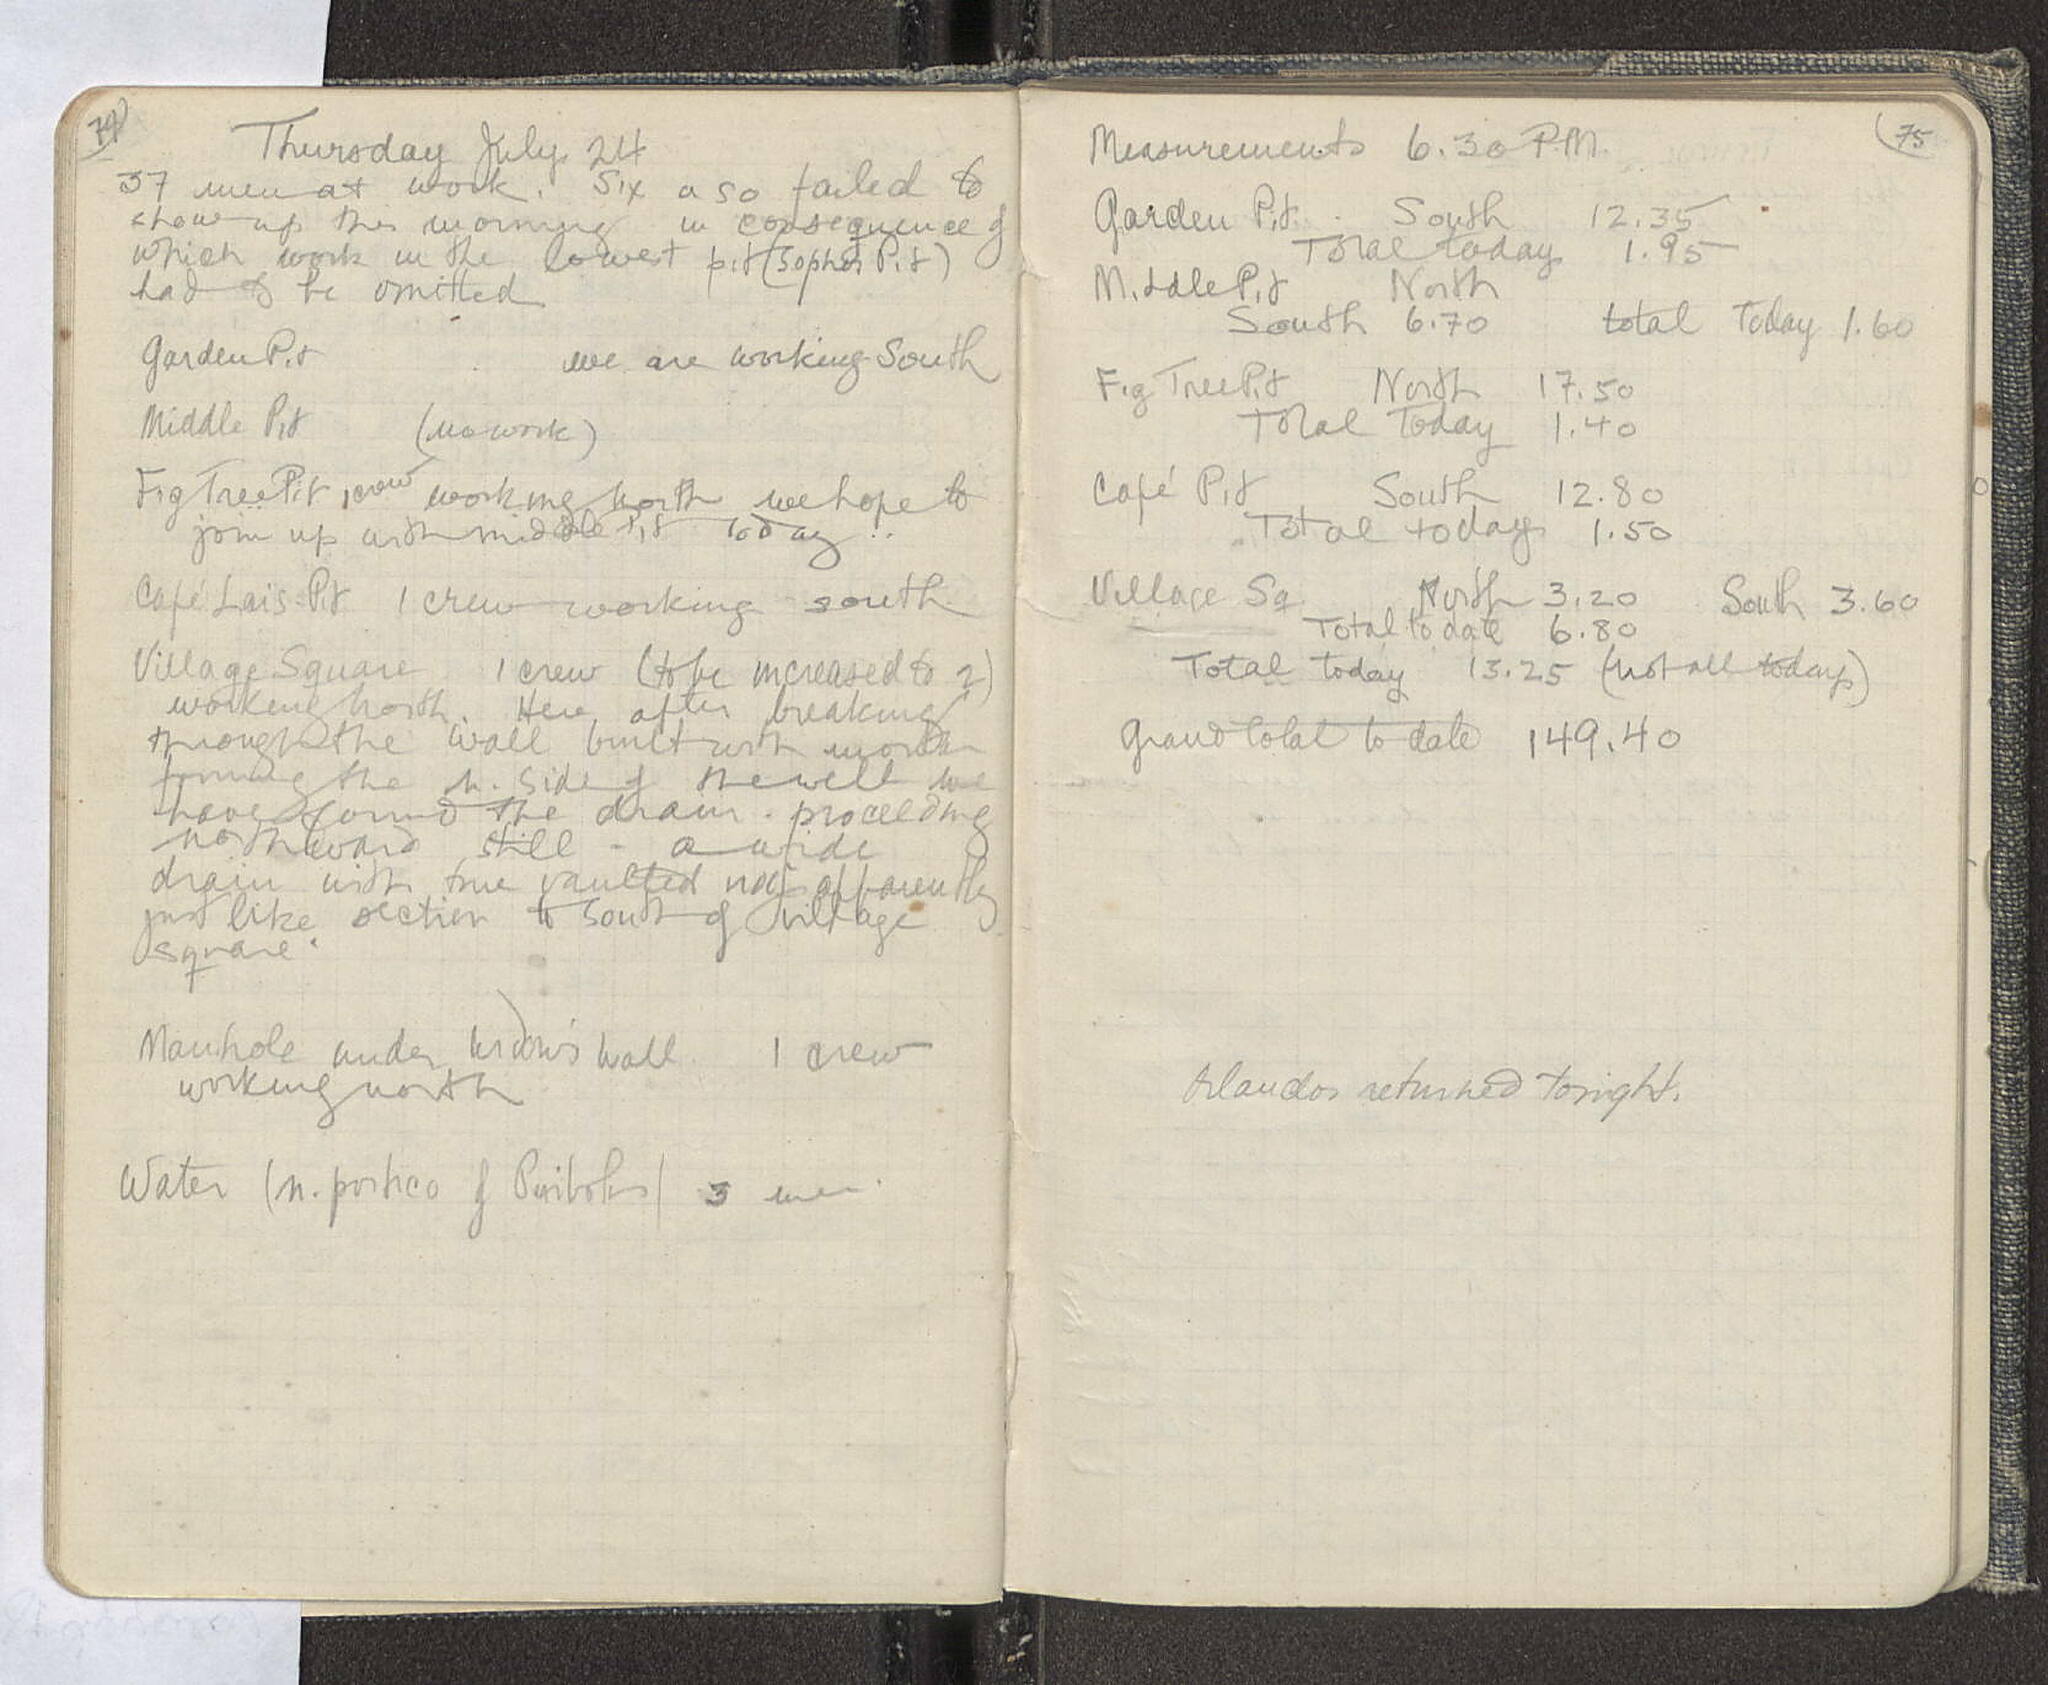 74
Thursday July 24
37 men at work. Six a so failed to
show up this morning in consequence of
which work in the lowest pit (Sophos Pit)
had to be omitted
Garden Pit we are working South
Middle Pit (no work)
Fig Tree Pit 1 crew working north we hope to
join up with middle Pit today!.
Café Lais Pit 1 crew working south
Village Square 1 crew (to be increased to 2)
working north. Here, after breaking
through the wall built with mortar
forming the n. side of the well we
have found the drain proceeding
northward still - a wide
drain with true vaulted roof apparently
just like section to south of village
square.
Manhole under wall 1 crew
working north
Water (n. portico of Peribolos) 3 men.
75
Measurements 6.30 P.M.
Garden Pit. South 12.35
Total today 1.95
Middle Pit North
South 6.70 total Today 1.60
Fig Tree Pit North 17.50
Total Today 1.40
Café Pit South 12.80
Total today 1.50
Village Sq. North 3.20 South 3.60
Total to date 6.80
Total today 13.25 (not all today)
Grand total to date 149.40
returned tonight.